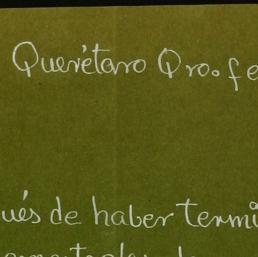 Querétaro Qro. fe
ués de haber termi